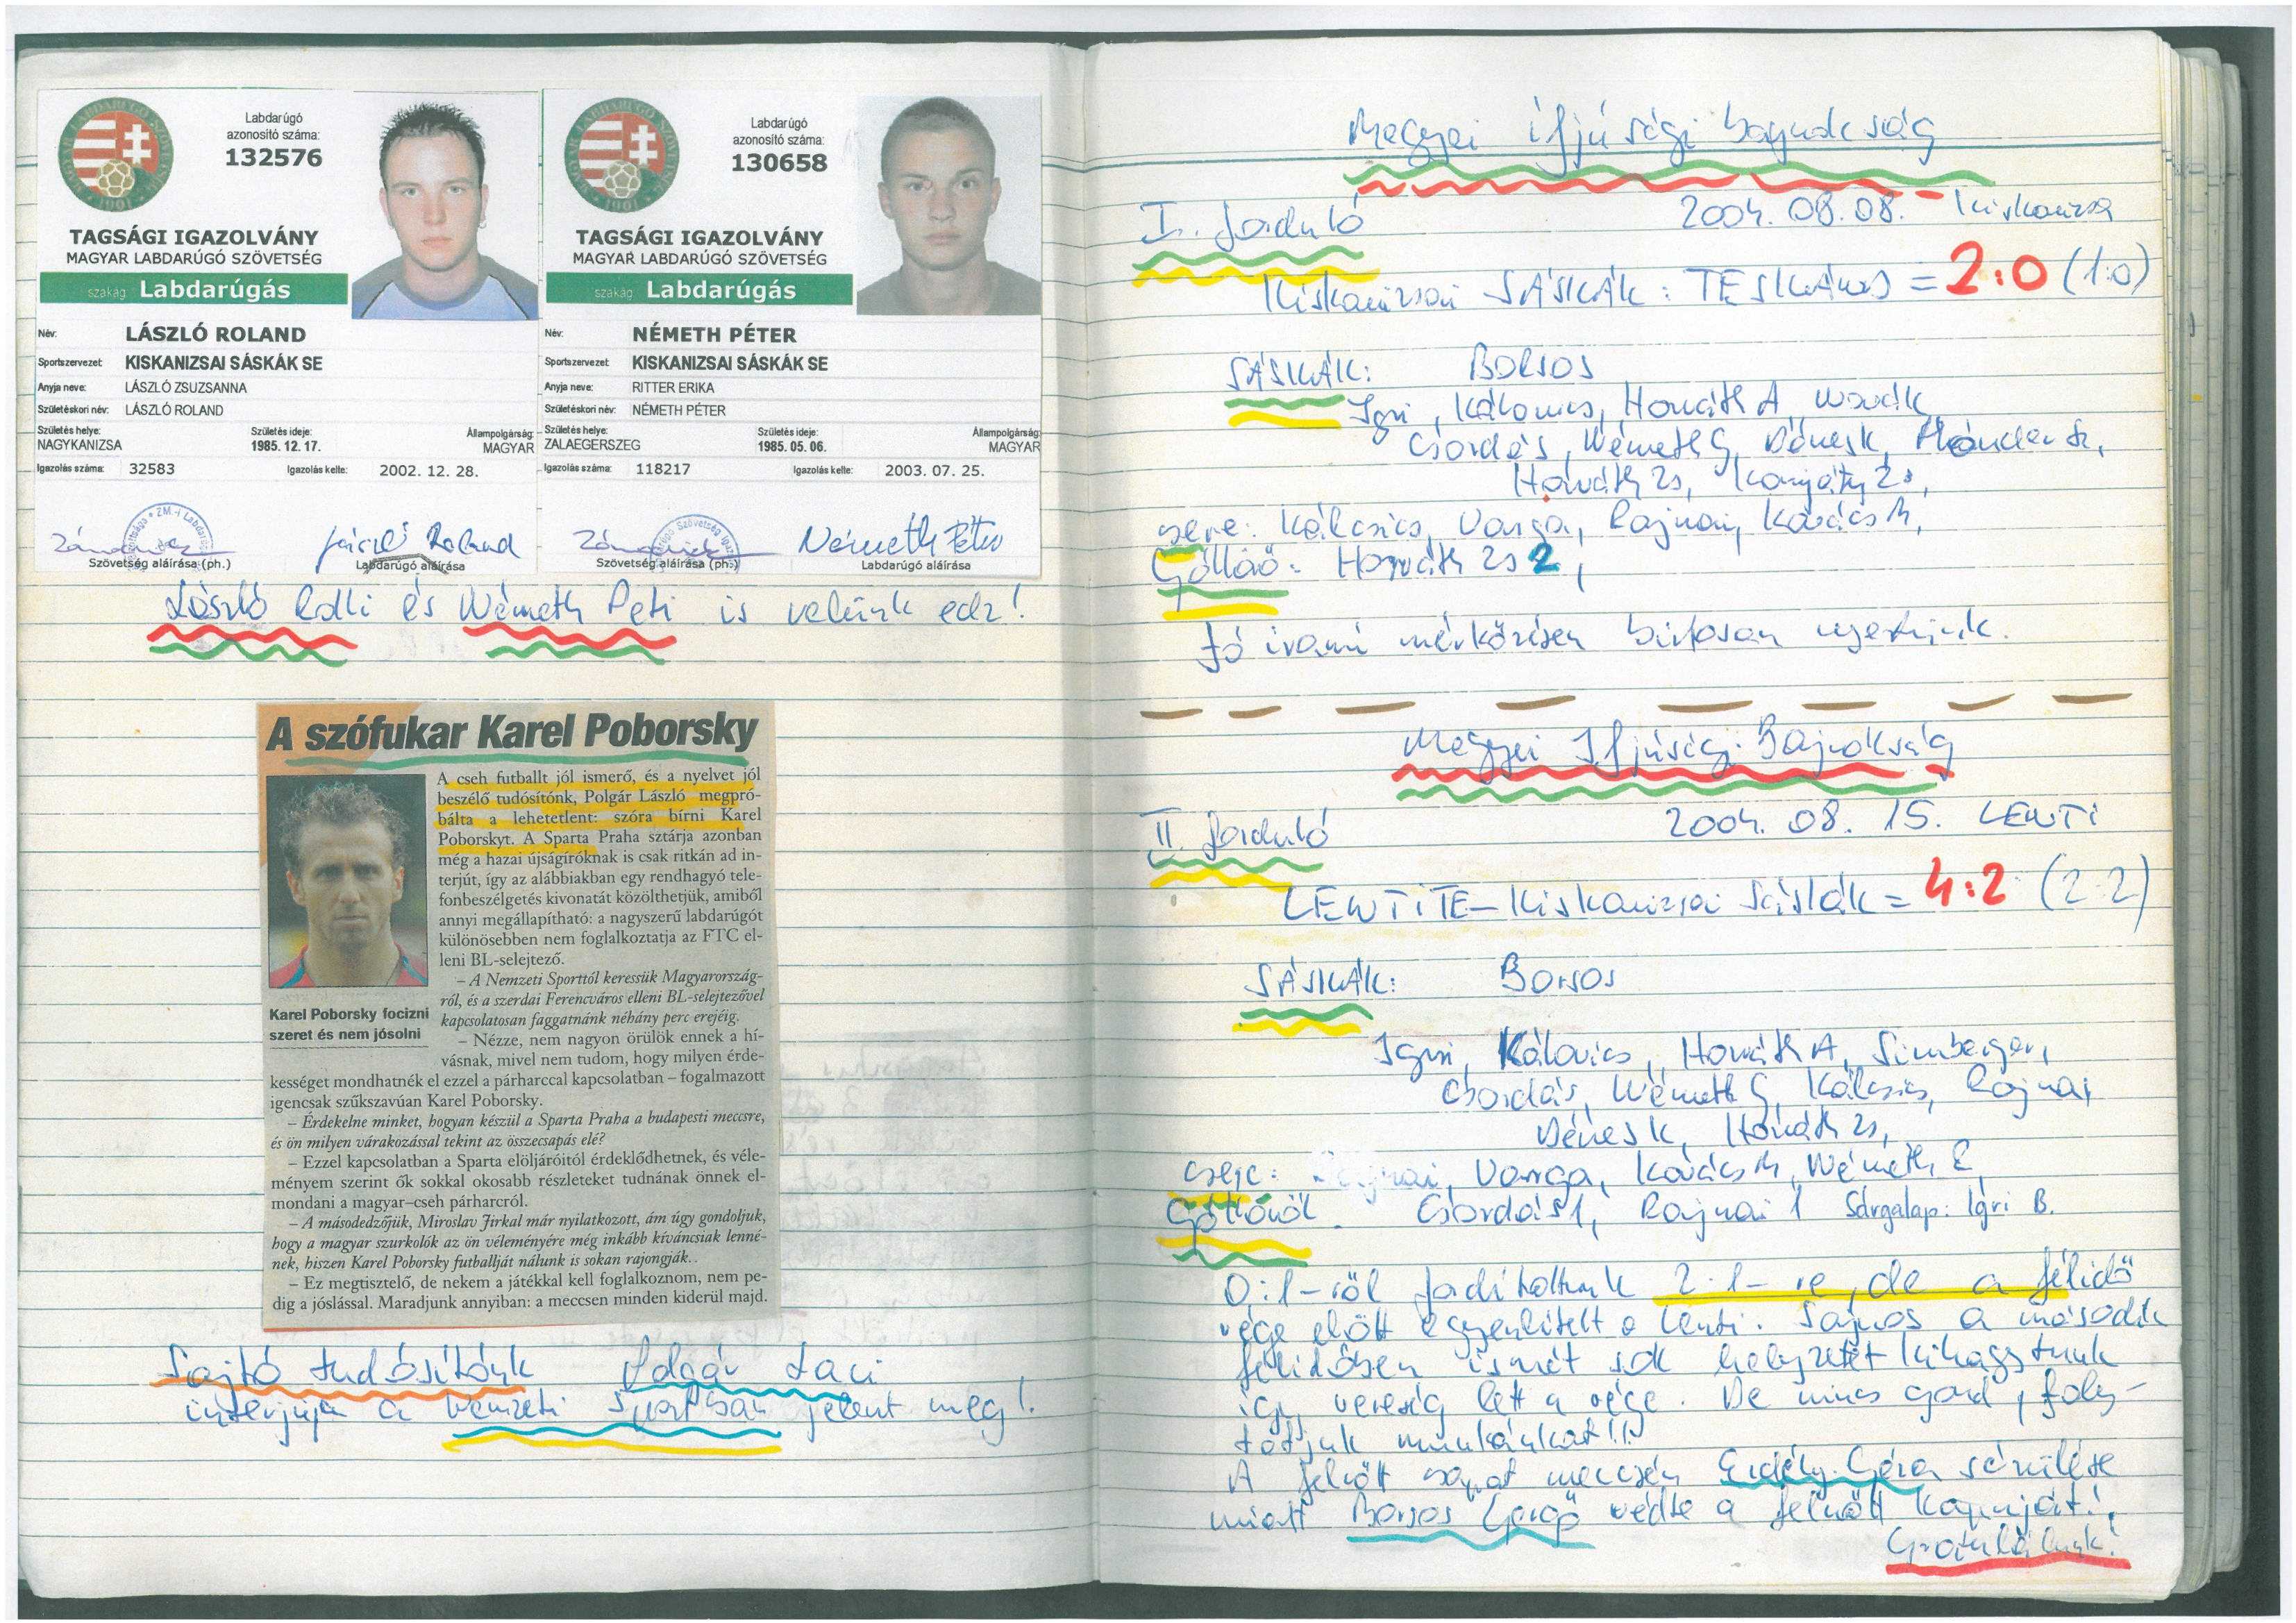 Labdarúgó
azonosító száma:
132576
TAGSÁGI IGAZOLVÁNY
MAGYAR LABDARÚGÓ SZÖVETSÉG
szakág Labdarúgás
Név: LÁSZLÓ ROLAND
Sportszervezet: KISKANIZSAI SÁSKÁK SE
Anyja neve: LÁSZLÓ ZSUZSANNA
Születéskori név: LÁSZLÓ ROLAND
Születés helye: Születés ideje: Állampolgárság:
NAGYKANIZSA 1985. 12. 17. MAGYAR
Igazolás száma: 32583 Igazolás kelte: 2002. 12. 28.
László Roland
Szövetség aláírása (ph.) Labdarúgó aláírása
Labdarúgó
azonosító száma:
130658
TAGSÁGI IGAZOLVÁNY
MAGYAR LABDARÚGÓ SZÖVETSÉG
szakág Labdarúgás
Név: NÉMETH PÉTER
Sportszervezet: KISKANIZSAI SÁSKÁK SE
Anyja neve: RITTER ERIKA
Születéskori név: NÉMETH PÉTER
Születés helye: Születés ideje: Állampolgárság:
ZALAEGERSZEG 1985. 05. 06. MAGYAR
Igazolás száma: 118217 Igazolás kelte: 2003. 07. 25.
Németh Péter
Szövetség aláírása (ph.) Labdarúgó aláírása
László Rolli és Németh Peti is velünk edz!
A szófukar Karel Poborsky
A cseh futballt jól ismerő, és a nyelvet jól
beszélő tudósítónk, Polgár László megpró-
bálta a lehetetlent: szóra bírni Karel
Poborskyt. A Sparta Praha sztárja azonban
még a hazai újságíróknak is csak ritkán ad in-
terjút, így az alábbiakban egy rendhagyó tele-
fonbeszélgetés kivonatát közölthetjük, amiből
annyi megállapítható: a nagyszerű labdarúgót
különösebben nem foglalkoztatja az FTC el-
leni BL-selejtező.
– A Nemzeti Sporttól keressük Magyarország-
ról, és a szerdai Ferencváros elleni BL-selejtezővel
kapcsolatosan faggatnánk néhány perc erejéig.
– Nézze, nem nagyon örülök ennek a hí-
vásnak, mivel nem tudom, hogy milyen érde-
kességet mondhatnék el ezzel a párharccal kapcsolatban – fogalmazott
igencsak szűkszavúan Karel Poborsky.
– Érdekelne minket, hogyan készül a Sparta Praha a budapesti meccsre,
és ön milyen várakozással tekint az összecsapás elé?
– Ezzel kapcsolatban a Sparta elöljáróitól érdeklődhetnek, és véle-
ményem szerint ők sokkal okosabb részleteket tudnának önnek el-
mondani a magyar–cseh párharcról.
– A másodedzőjük, Miroslav Jirkal már nyilatkozott, ám úgy gondoljuk,
hogy a magyar szurkolók az ön véleményére még inkább kíváncsiak lenné-
nek, hiszen Karel Poborsky futballját nálunk is sokan rajongják..
– Ez megtisztelő, de nekem a játékkal kell foglalkoznom, nem pe-
dig a jóslással. Maradjunk annyiban: a meccsen minden kiderül majd.
Karel Poborsky focizni
szeret és nem jósolni
Sajtó tudósítónk Polgár Laci
interjúja a Nemzeti Sportban jelent meg!
Megyei ifjúsági bajnokság
I. forduló 2004. 08. 08. Kiskanizsa
Kiskanizsai SÁSKÁK : TESKÁND = 2:0 (1:0)
SÁSKÁK: BORSOS
Igri, Kálovics, Horváth A, Novák
Csordás, Németh G, Dénes K,
Horváth Zs, Zs,
csere: Kálcsics, Varga, Rajnai, Kovács M,
Góllövő: Horváth Zs 2,
Jó iramú mérkőzésen biztosan nyertünk.
Megyei Ifjúsági Bajnokság
II. forduló 2004. 08. 15. LENTI
LENTI TE – Kiskanizsai Sáskák = 4:2 (2:2)
SÁSKÁK: Borsos
Igri, Kálovics, Horváth A, Simberger,
Csordás, Németh G, Kálcsics, Rajnai
Dénes K, Horváth Zs,
csere: Varga, Kovács M, Németh E
Góllövők Csordás 1, Rajnai 1 Sárgalap: Igri B.
0:1-ről fordítottunk 2:1-re, de a félidő
vége előtt egyenlített a Lenti. Sajnos a második
félidőben ismét sok helyzetet kihagytunk
így vereség lett a vége. De nincs gond, foly-
tatjuk munkánkat!!!
A felnőtt csapat meccsén Erdélyi Géza sérülése
miatt Borsos Gergő védte a felnőtt kapuját!
Gratulálunk!